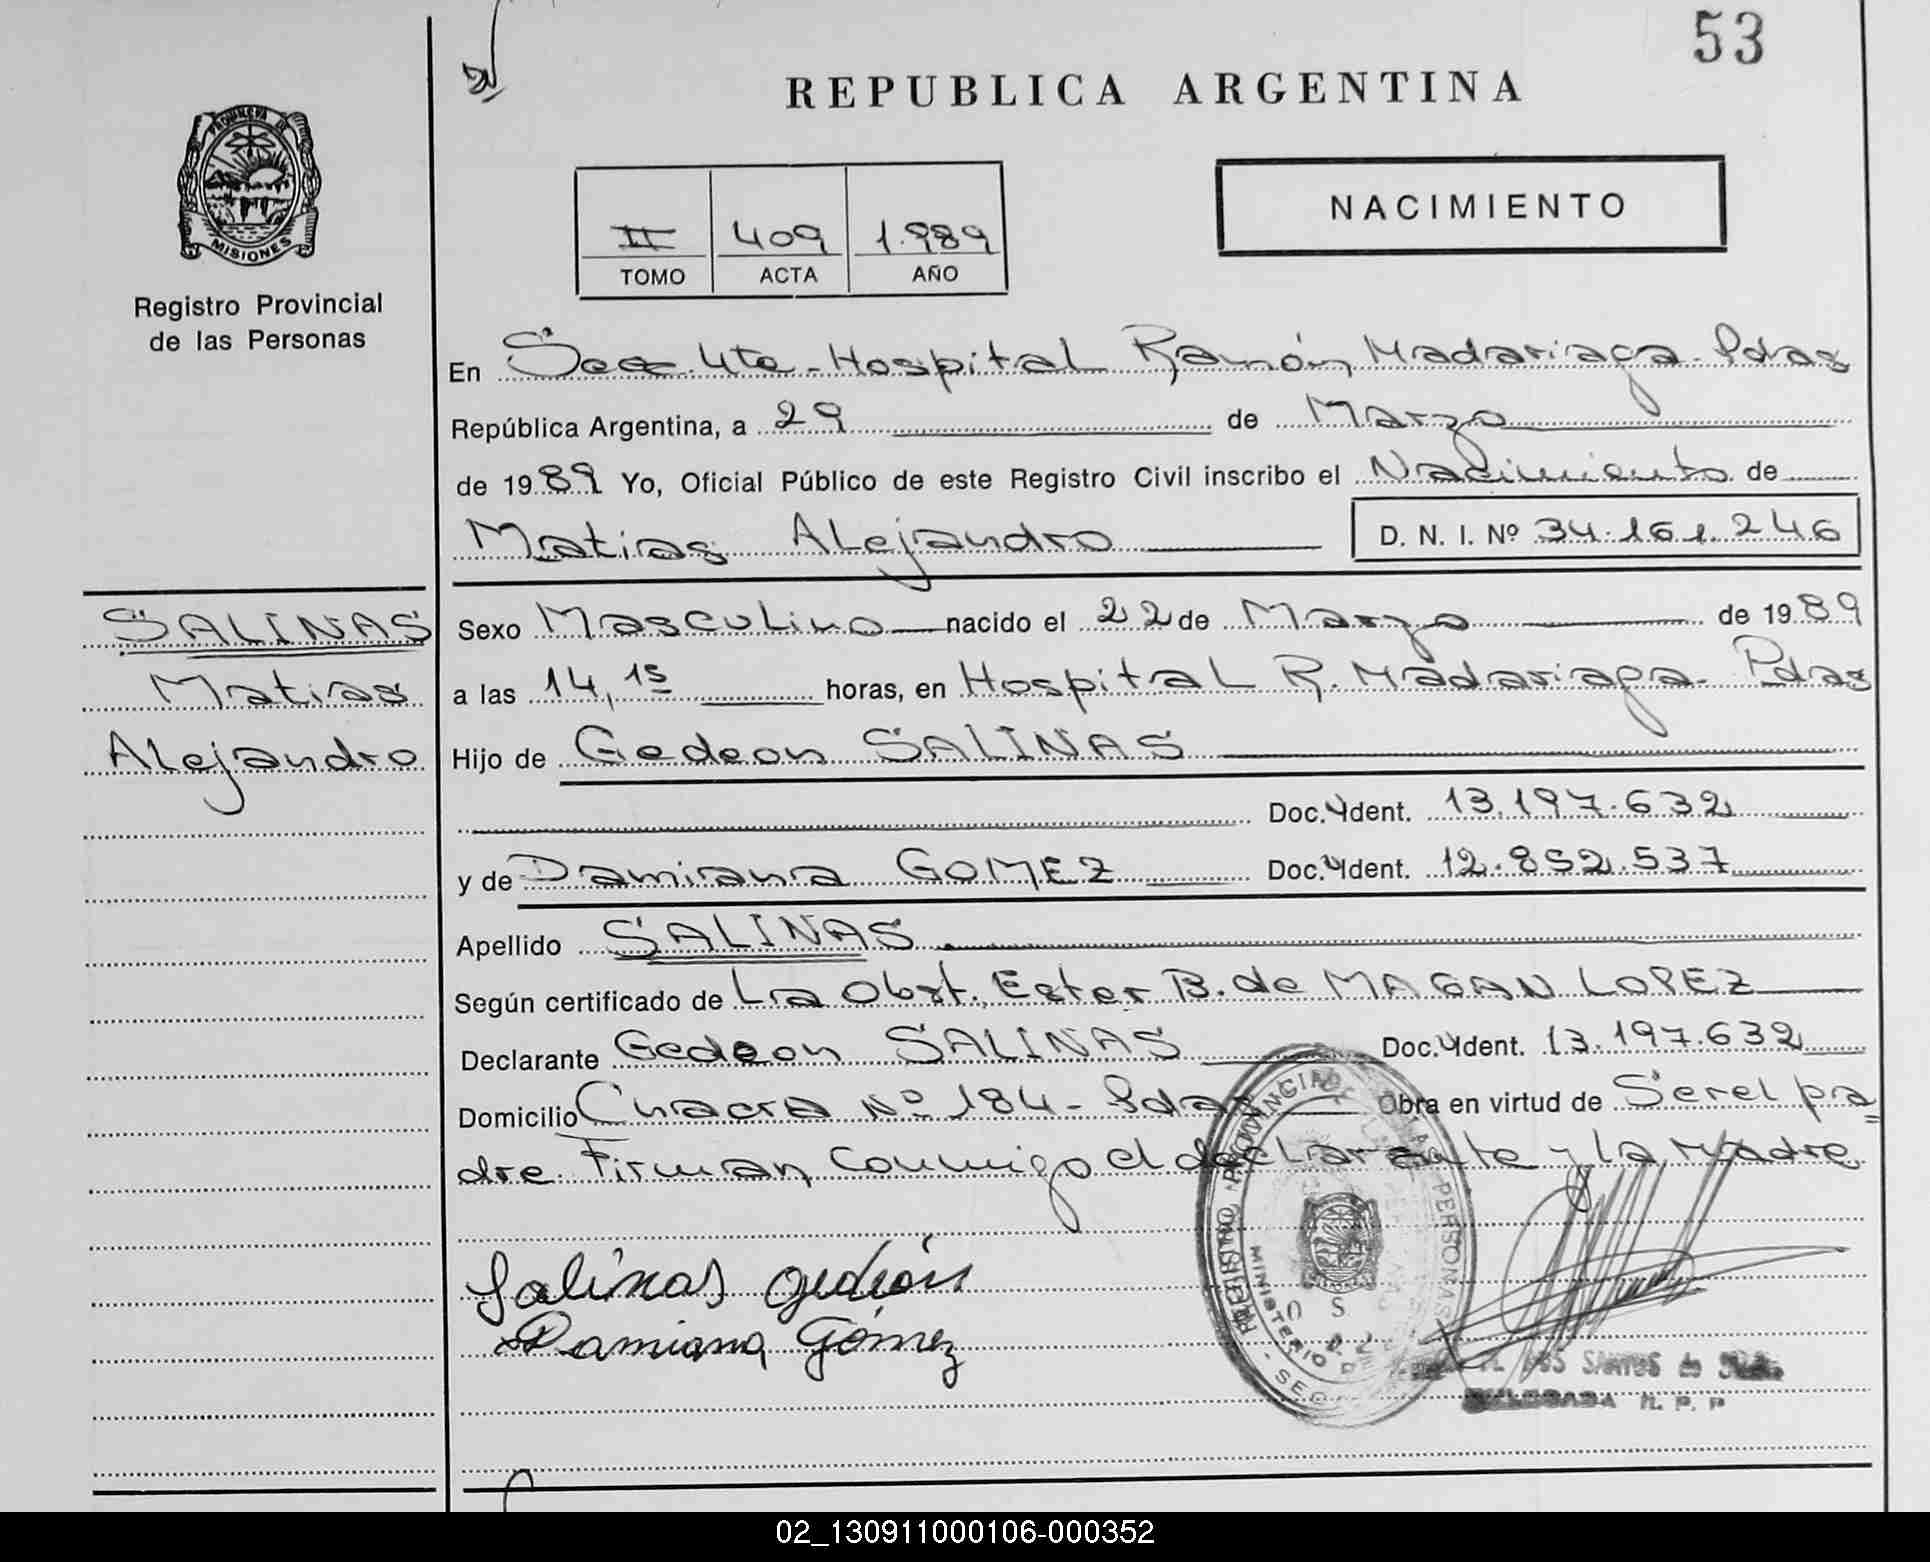 53
REPUBLICA ARGENTINA
PROVINCIA DE
MISIONES
Registro Provincial
de las Personas
II 409 1.989
TOMO ACTA AÑO
NACIMIENTO
En Secc. 4ta - Hospital Ramón Madariaga - Pdas
República Argentina, a 29 de Marzo
de 1989 Yo, Oficial Público de este Registro Civil inscribo el Nacimiento de
Matias Alejandro D. N. I. Nº 34.161.246
SALINAS
Matias
Alejandro
Sexo Masculino nacido el 22 de Marzo de 1989
a las 14,15 horas, en Hospital R. Madariaga - Pdas
Hijo de Gedeon SALINAS
Doc. Ydent. 13.197.632
y de Damiana GOMEZ Doc. Ydent. 12.852.537
Apellido SALINAS
Según certificado de La Obst. Ester B. de MAGAN LOPEZ
Declarante Gedeon SALINAS Doc. Ydent. 13.197.632
Domicilio Chacra Nº 184 - Pdas Obra en virtud de Ser el pa=
dre. Firman conmigo el declarante y la Madre
Salinas Gedeón
Damiana Gómez
PROVINCIAL DE LAS PERSONAS
MINISTERIO DE
DOS SANTOS de
R. P. P
02_130911000106-000352